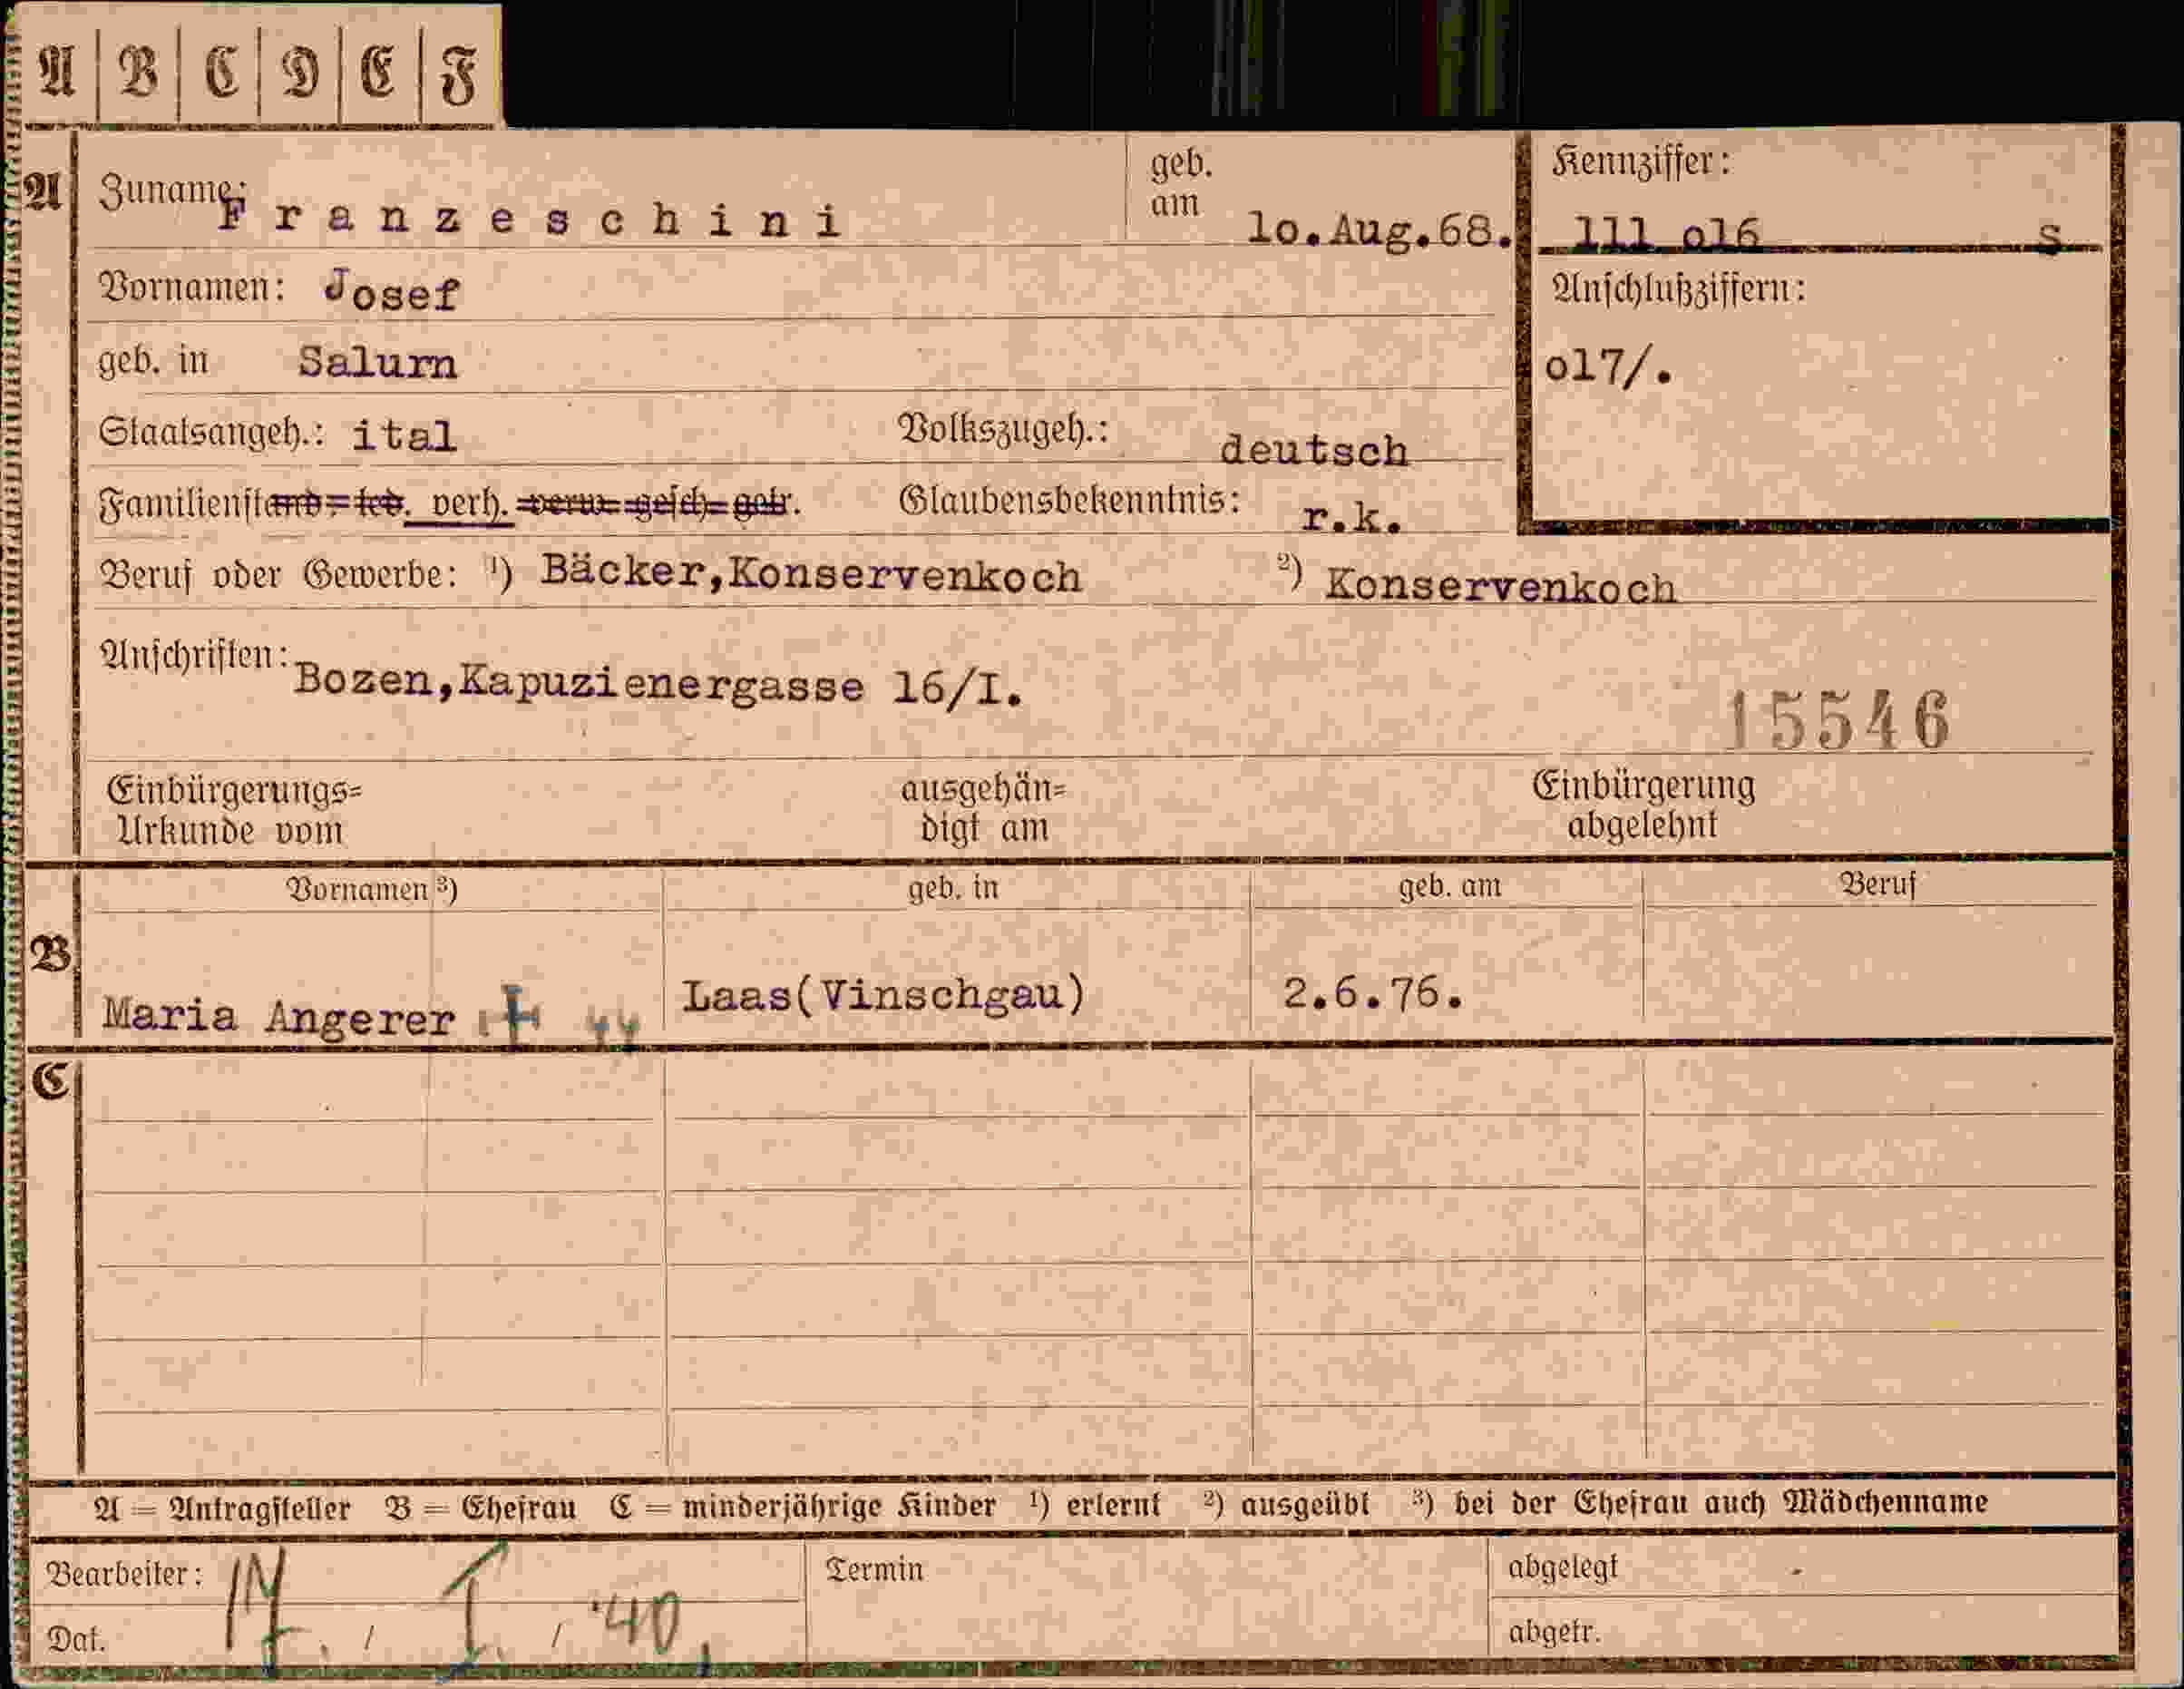 A B C D E F
A Zuname: Franzeschini geb. am 1o.Aug.68. Kennziffer: 111 o16 s
Vornamen: Josef Anschlußziffern:
geb. in Salurn o17/.
Staatsangeh.: ital Volkszugeh.: deutsch
Familienstand - led. verh. verw. gesch. getr. Glaubensbekenntnis: r.k.
Beruf oder Gewerbe: ¹) Bäcker,Konservenkoch ²) Konservenkoch
Anschriften: Bozen,Kapuzienergasse 16/I.
15546
Einbürgerungs= ausgehän= Einbürgerung
Urkunde vom digt am abgelehnt
Vornamen ³) geb. in geb. am Beruf
B Maria Angerer Laas(Vinschgau) 2.6.76.
C
A = Antragsteller B = Ehefrau C = minderjährige Kinder ¹) erlernt ²) ausgeübt ³) bei der Ehefrau auch Mädchenname
Bearbeiter: Termin abgelegt
Dat. / I. / '40. abgetr.